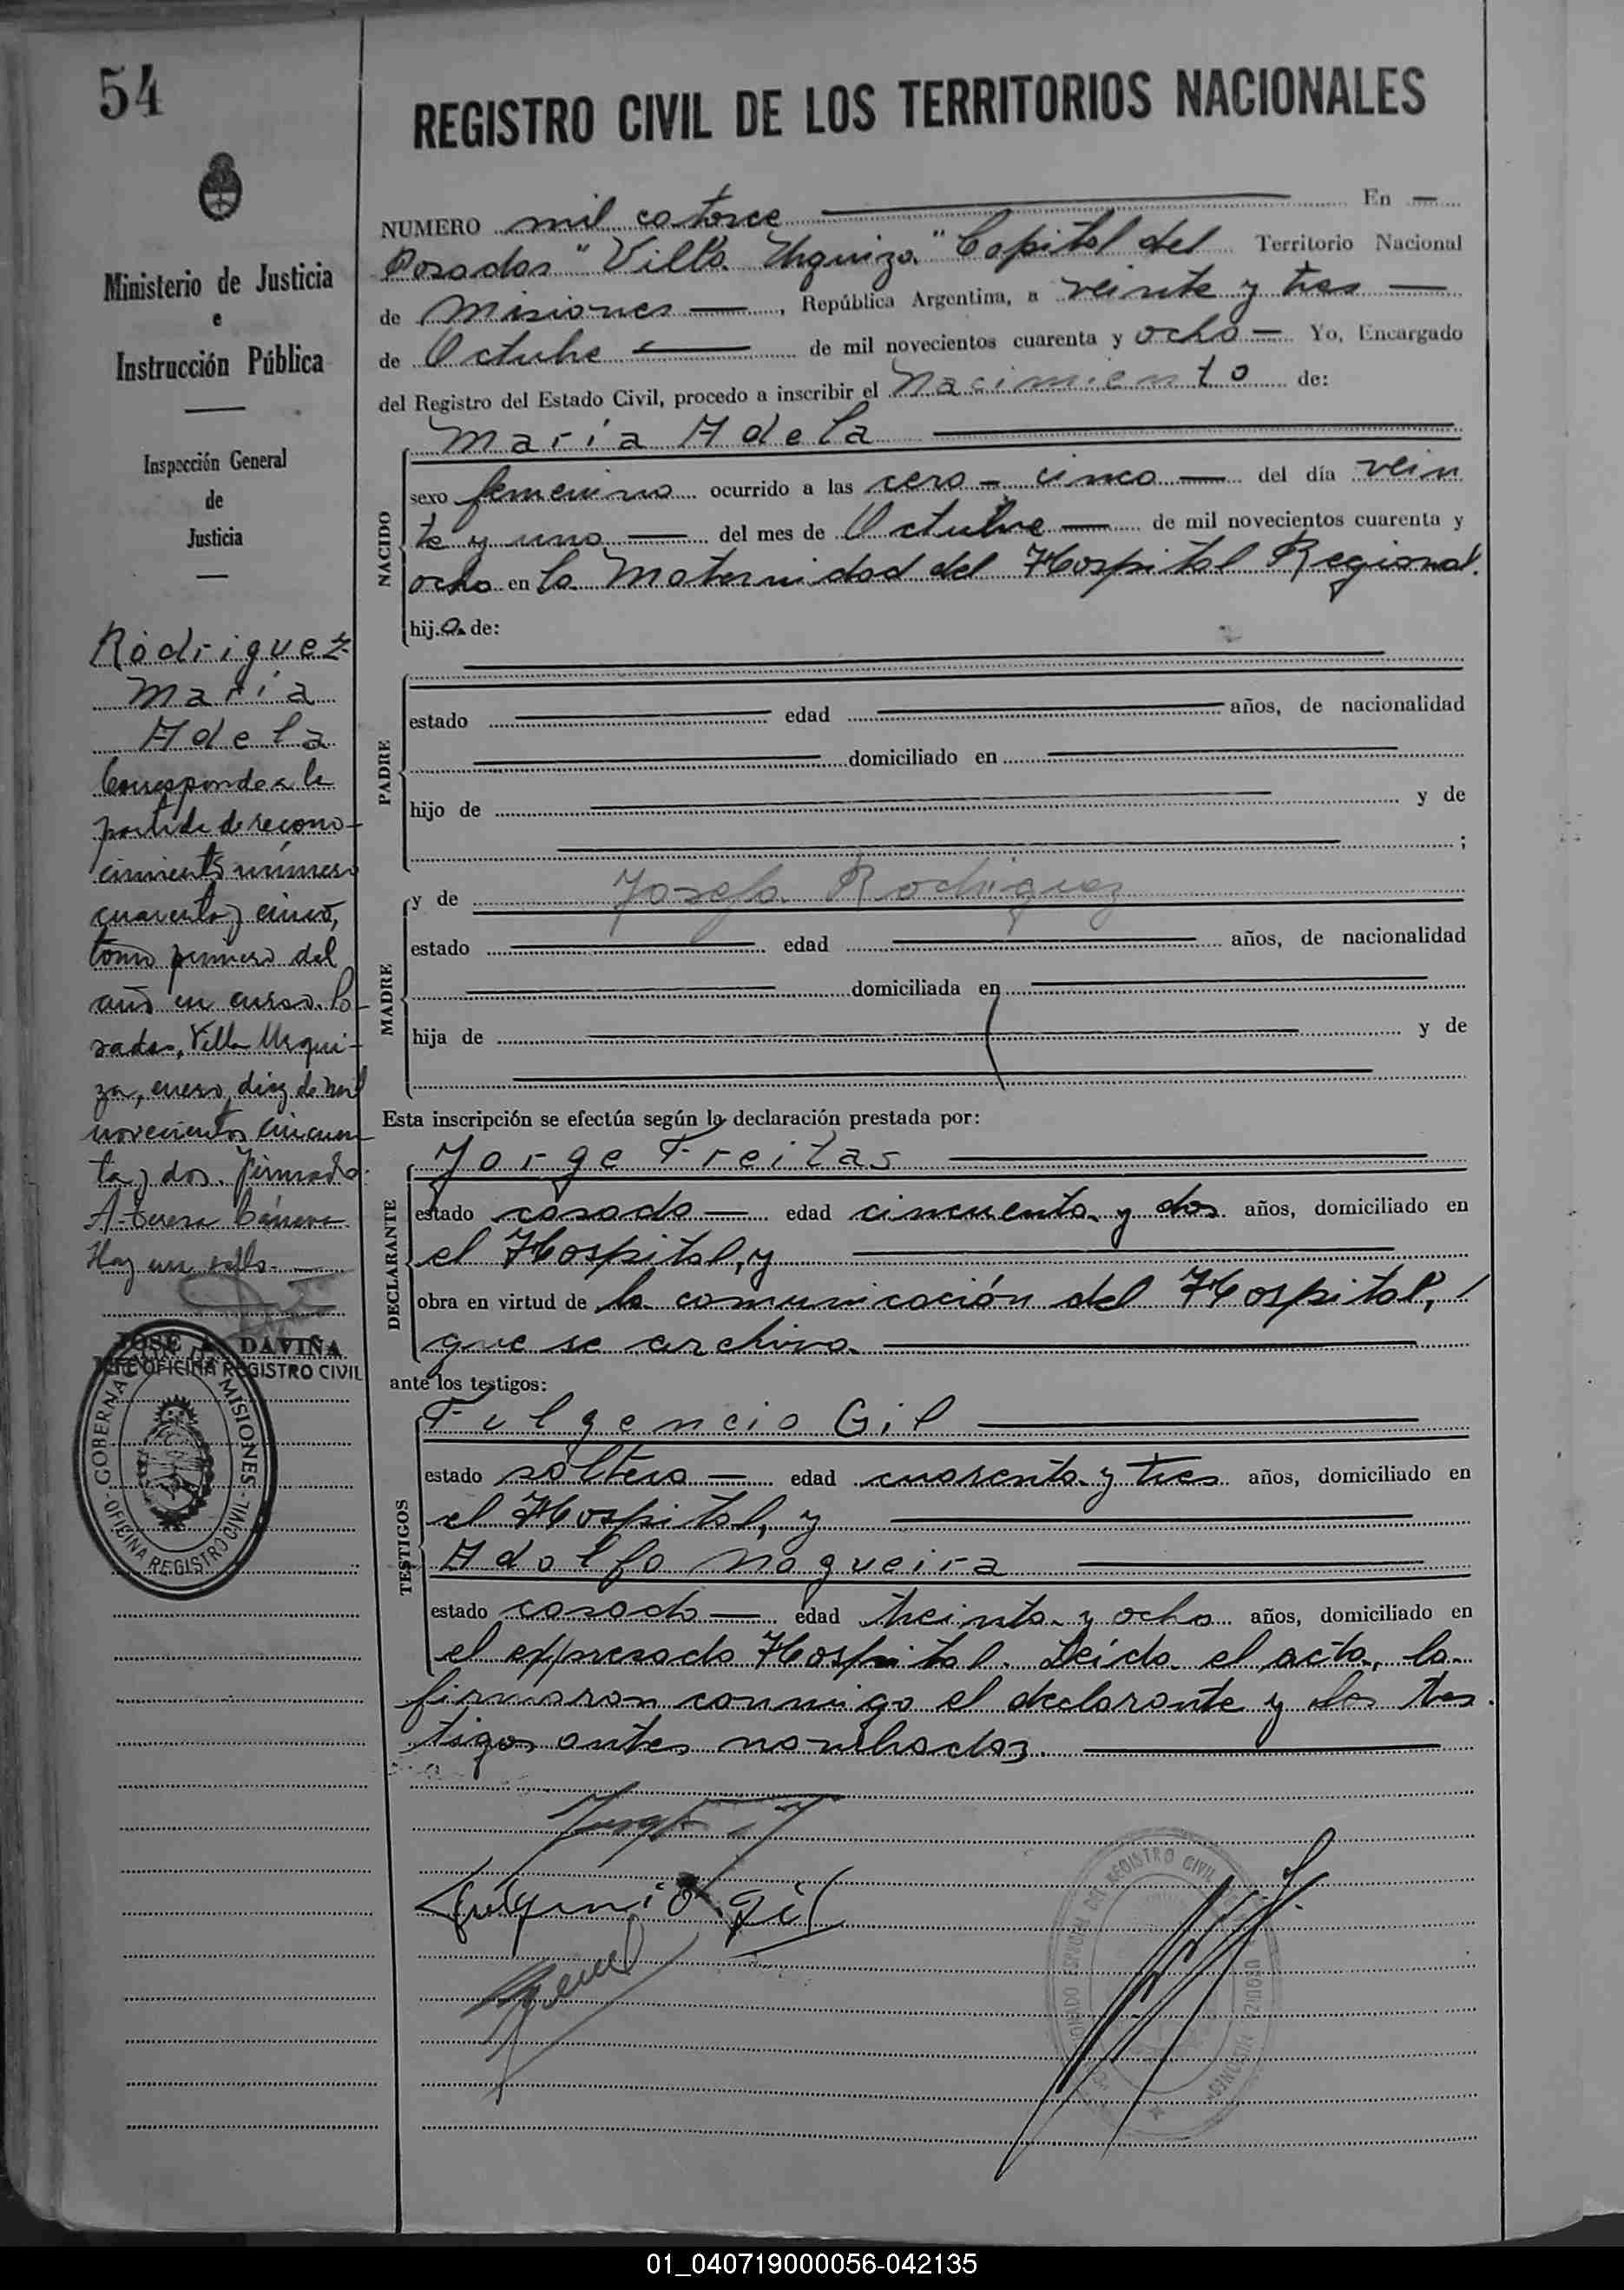 54
REGISTRO CIVIL DE LOS TERRITORIOS NACIONALES
Ministerio de Justicia
e
Instrucción Pública
Inspección General
de
Justicia
Rodriguez
María
Adela
Corresponde a la
partida de recono-
cimiento número
cuarenta y cinco,
tomo primero del
año en curso. Po-
sadas, Villa Urqui-
za, enero diez de mil
novecientos cincuen
ta y dos. Firmado:
A. Teresa
Hay un sello.
JOSE A. DAVIÑA
OFICINA REGISTRO CIVIL
GOBERNA MISIONES
OFICINA REGISTRO CIVIL
NUMERO mil catorce En
Posadas "Villa Urquiza" Capital del Territorio Nacional
de Misiones, República Argentina, a veinte y tres
de Octubre de mil novecientos cuarenta y ocho Yo, Encargado
del Registro del Estado Civil, procedo a inscribir el Nacimiento de:
NACIDO
María Adela
sexo femenino ocurrido a las cero - cinco del día vein
te y uno del mes de Octubre de mil novecientos cuarenta y
ocho en la Maternidad del Hospital Regional.
hija de:
PADRE
estado edad años, de nacionalidad
domiciliado en
hijo de y de
;
MADRE
y de Josefa Rodriguez
estado edad años, de nacionalidad
domiciliada en
hija de y de
Esta inscripción se efectúa según la declaración prestada por:
DECLARANTE
Jorge Freitas
estado casado edad cincuenta y dos años, domiciliado en
el Hospital, y
obra en virtud de la comunicación del Hospital,
que se archiva.
ante los testigos:
TESTIGOS
Fulgencio Gil
estado soltero edad cuarenta y tres años, domiciliado en
el Hospital, y
Adolfo Nogueira
estado casado edad treinta y ocho años, domiciliado en
el expresado Hospital. Leída el acta, la
firmaron conmigo el declarante y los tes
tigos antes nombrados.
Fulgencio Gil
01_040719000056-042135